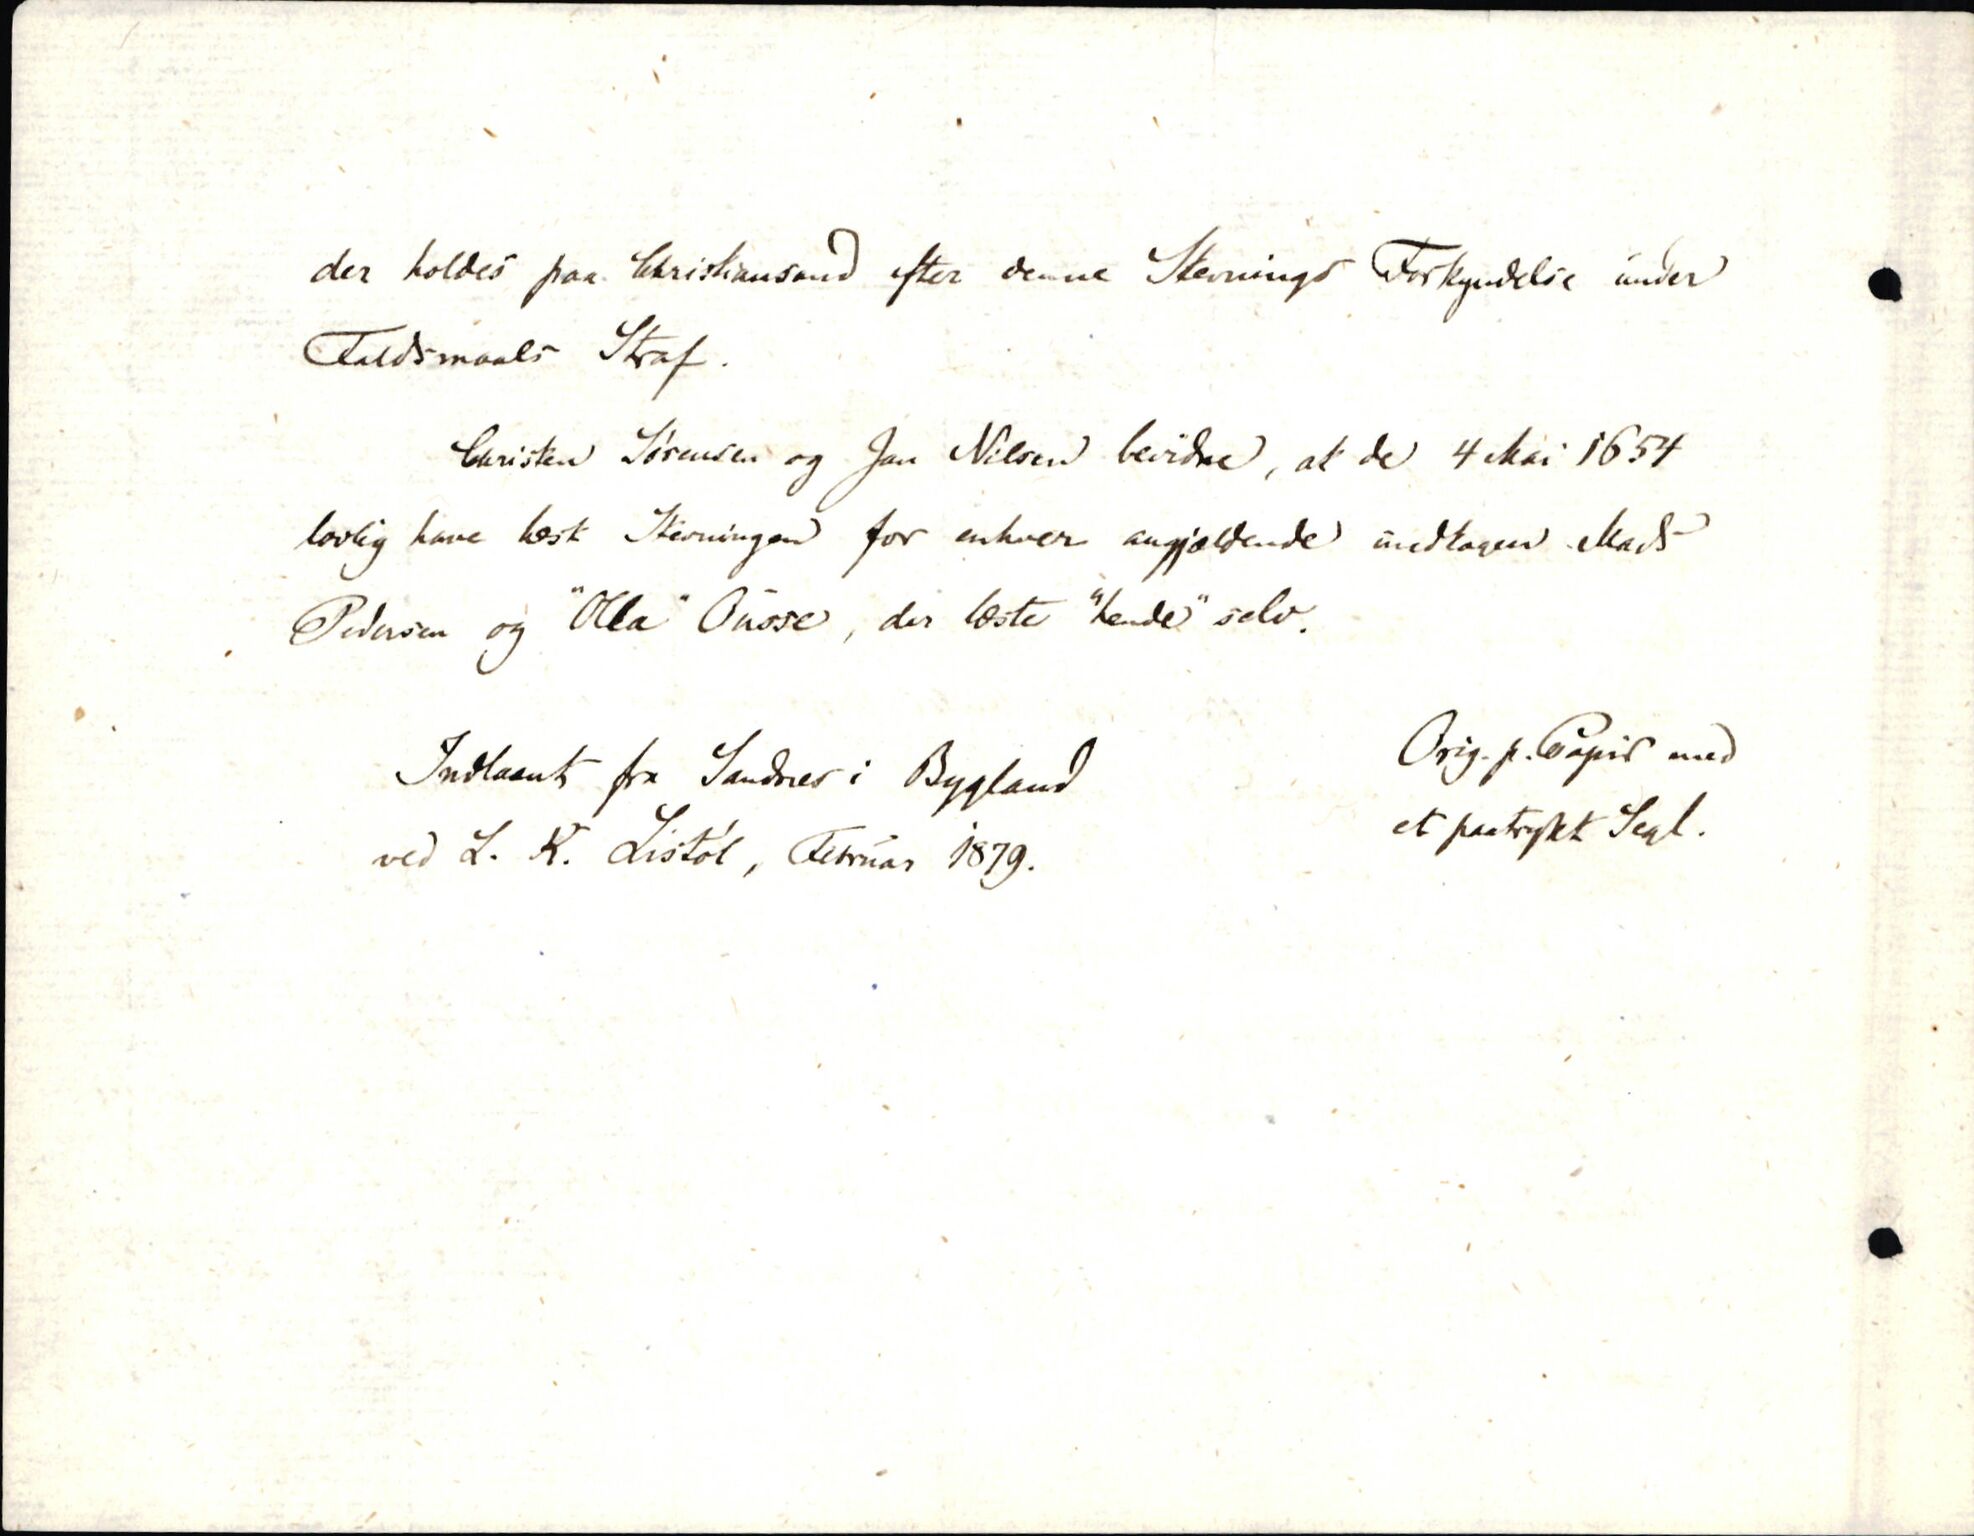 der holdes paa Christiansand efter denne Stevnings Forkyndelse under
Faldsmaals Straf.
Christen Sörensen og Jan Nilsen bevidne, at de 4 Mai 1654
lovlig have læst Stevningen for enhver angjældende undtagen Mads
Pedersen og "Olla" Ousse, der læste "hende" selv.
Indlaant fra Sandnes i Bygland
ved L. K. Listöl, Februar 1879.
Orig. p. Papir med
et paatrykt Segl.